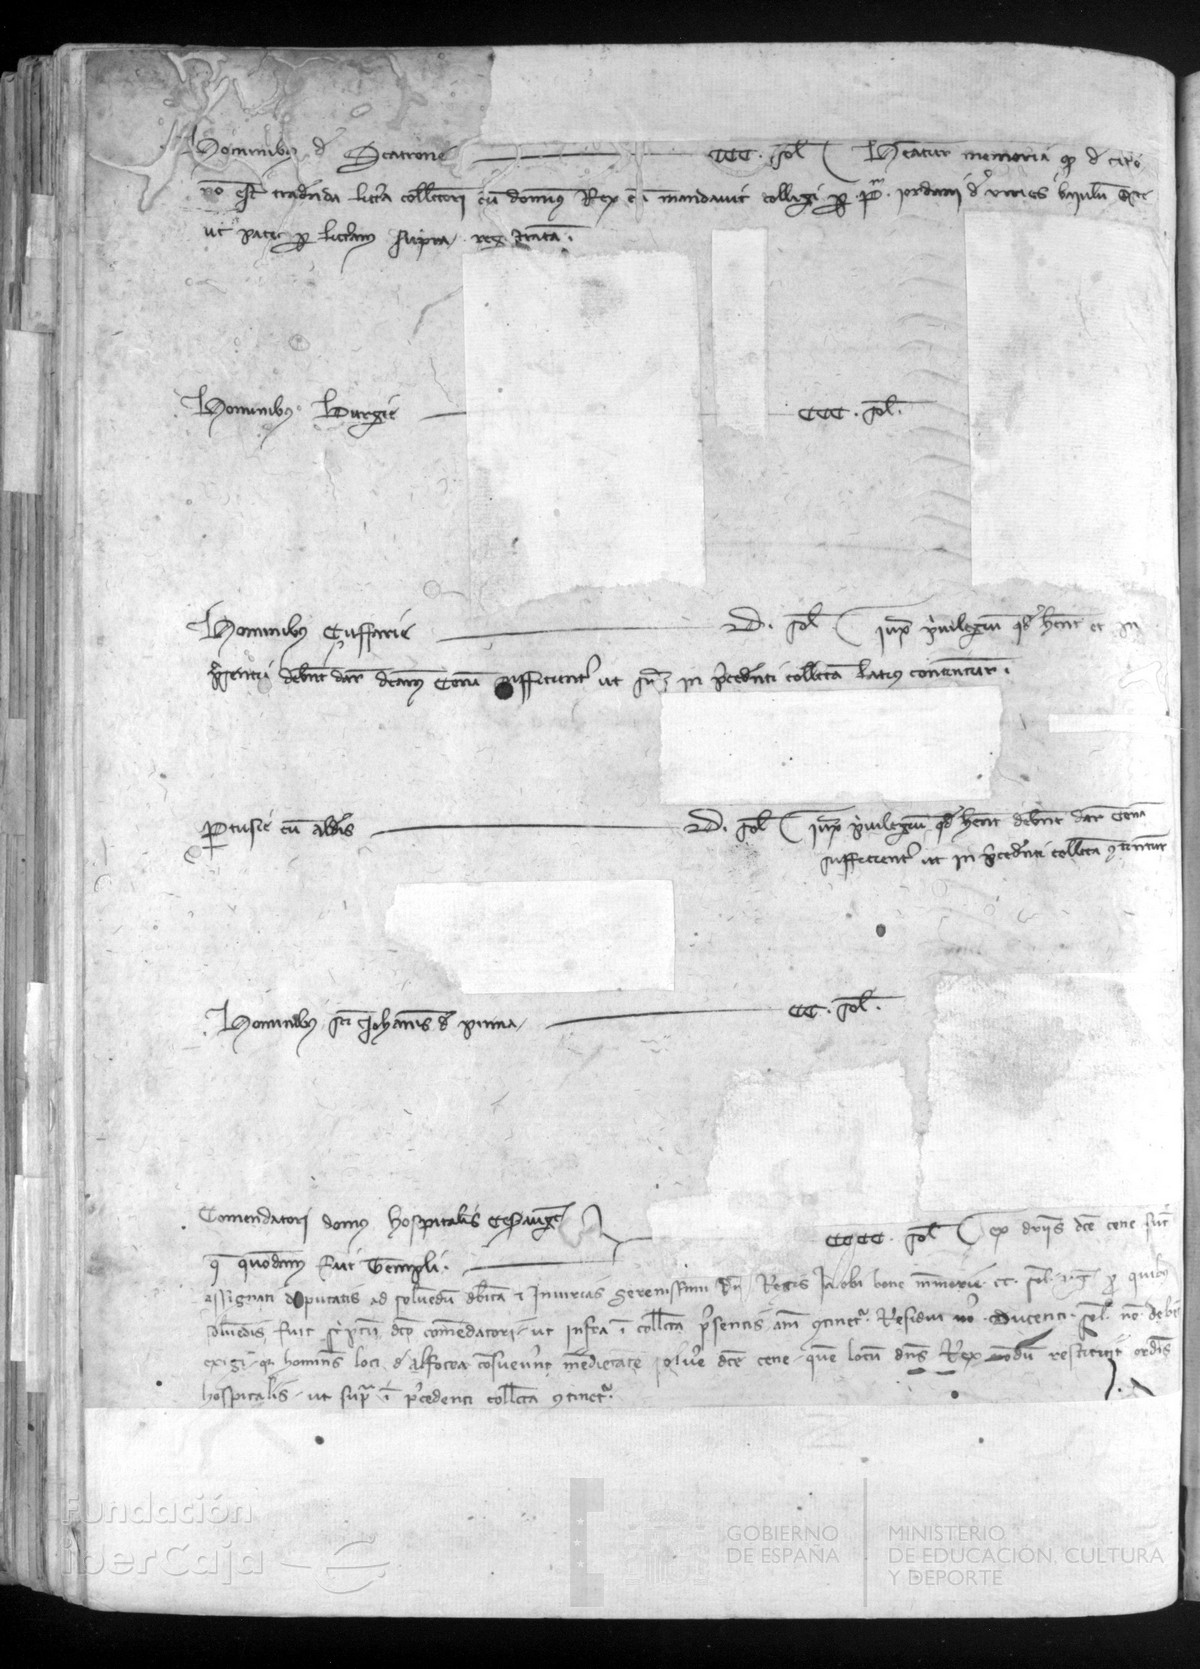 Hominibus de Scatrone CCC. sol Habeatur memoria quod de
est tradenda littera collectori cum dominus Rex mandavit colligi per P. Jordani d'Urries bajulum
ut patet per litteram supra registratam.
Hominibus Burgie CCC. sol.
Hominibus Cuffarie D. sol juxta privilegium quod habent et in
presenti debent dare dictam cenam sufficienter ut in precedenti collecta latius continetur.
Pertusie cum aldeis D. sol juxta privilegium quod habent debent dare cenam
sufficienter ut in precedenti collecta continetur
Hominibus sancti Johannis de pinna CC. sol.
Comendatori domus hospitalis Cesarauguste CCCC. sol ex dictis
que quondam fuit Templi.
assignati deputatis ad solvendum debita et injurias serenissimi domini Regis Jacobi bone memorie CC. sol.
fuit dicto comendatori ut infra in collecta presentis continetur. Residui vero Ducenti sol. non
exigi homines loci de alfocea consueverunt medietatem solvere dicte cene quem locum dominus Rex nondum restituit ordini
hospitalis ut supra in precedenti collecta continetur.
Fundación
iberCaja
GOBIERNO
DE ESPAÑA
MINISTERIO
DE EDUCACIÓN, CULTURA
Y DEPORTE